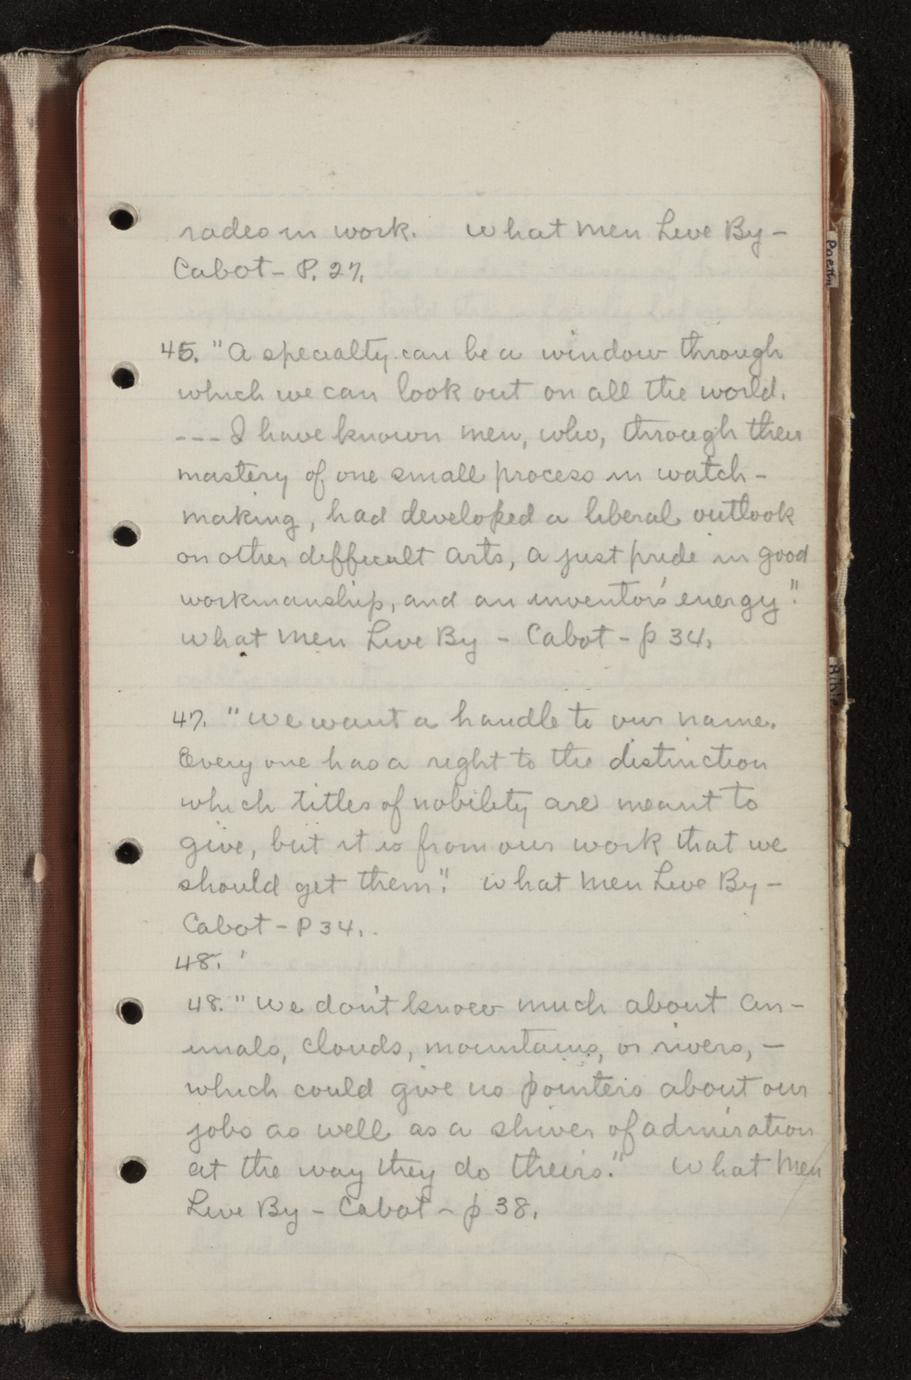 rades in work. What Men Live By -
Cabot - P. 27.
45. "A specialty can be a window through
which we can look out on all the world.
--- I have known men, who, through their
mastery of one small process in watch-
making, had developed a liberal outlook
on other difficult arts, a just pride in good
workmanship, and an inventor's energy."
What Men Live By - Cabot - p 34.
47. "We want a handle to our name.
Every one has a right to the distinction
which titles of nobility are meant to
give, but it is from our work that we
should get them". What Men Live By -
Cabot - P 34.
48. '
48. "We don't know much about an-
imals, clouds, mountains, or rivers, -
which could give us pointers about our
jobs as well as a shiver of admiration
at the way they do theirs." What Men
Live By - Cabot - p 38.
Poetry